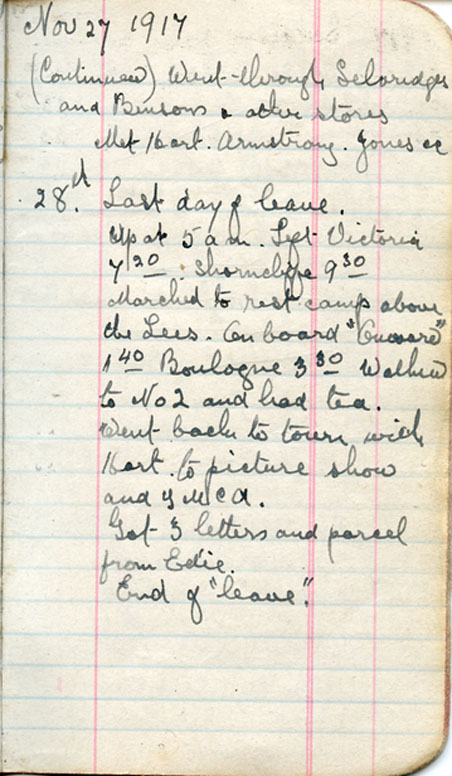 Nov 27 1917
(Continued) Went through Selfridges
and Bensons & other stores
Met Hart. Armstrong. Jones &c
28.th Last day of leave.
Up at 5 a.m. Left Victoria
7 20 . Shorncliffe 9 30
Marched to rest camp above
the Lees. On board "Onward"
1 40 Boulogne 3 30 Walked
to No 2 and had tea.
Went back to town with
Hart. to picture show
and Y M C A.
Got 3 letters and parcel
from Edie.
End of "leave".